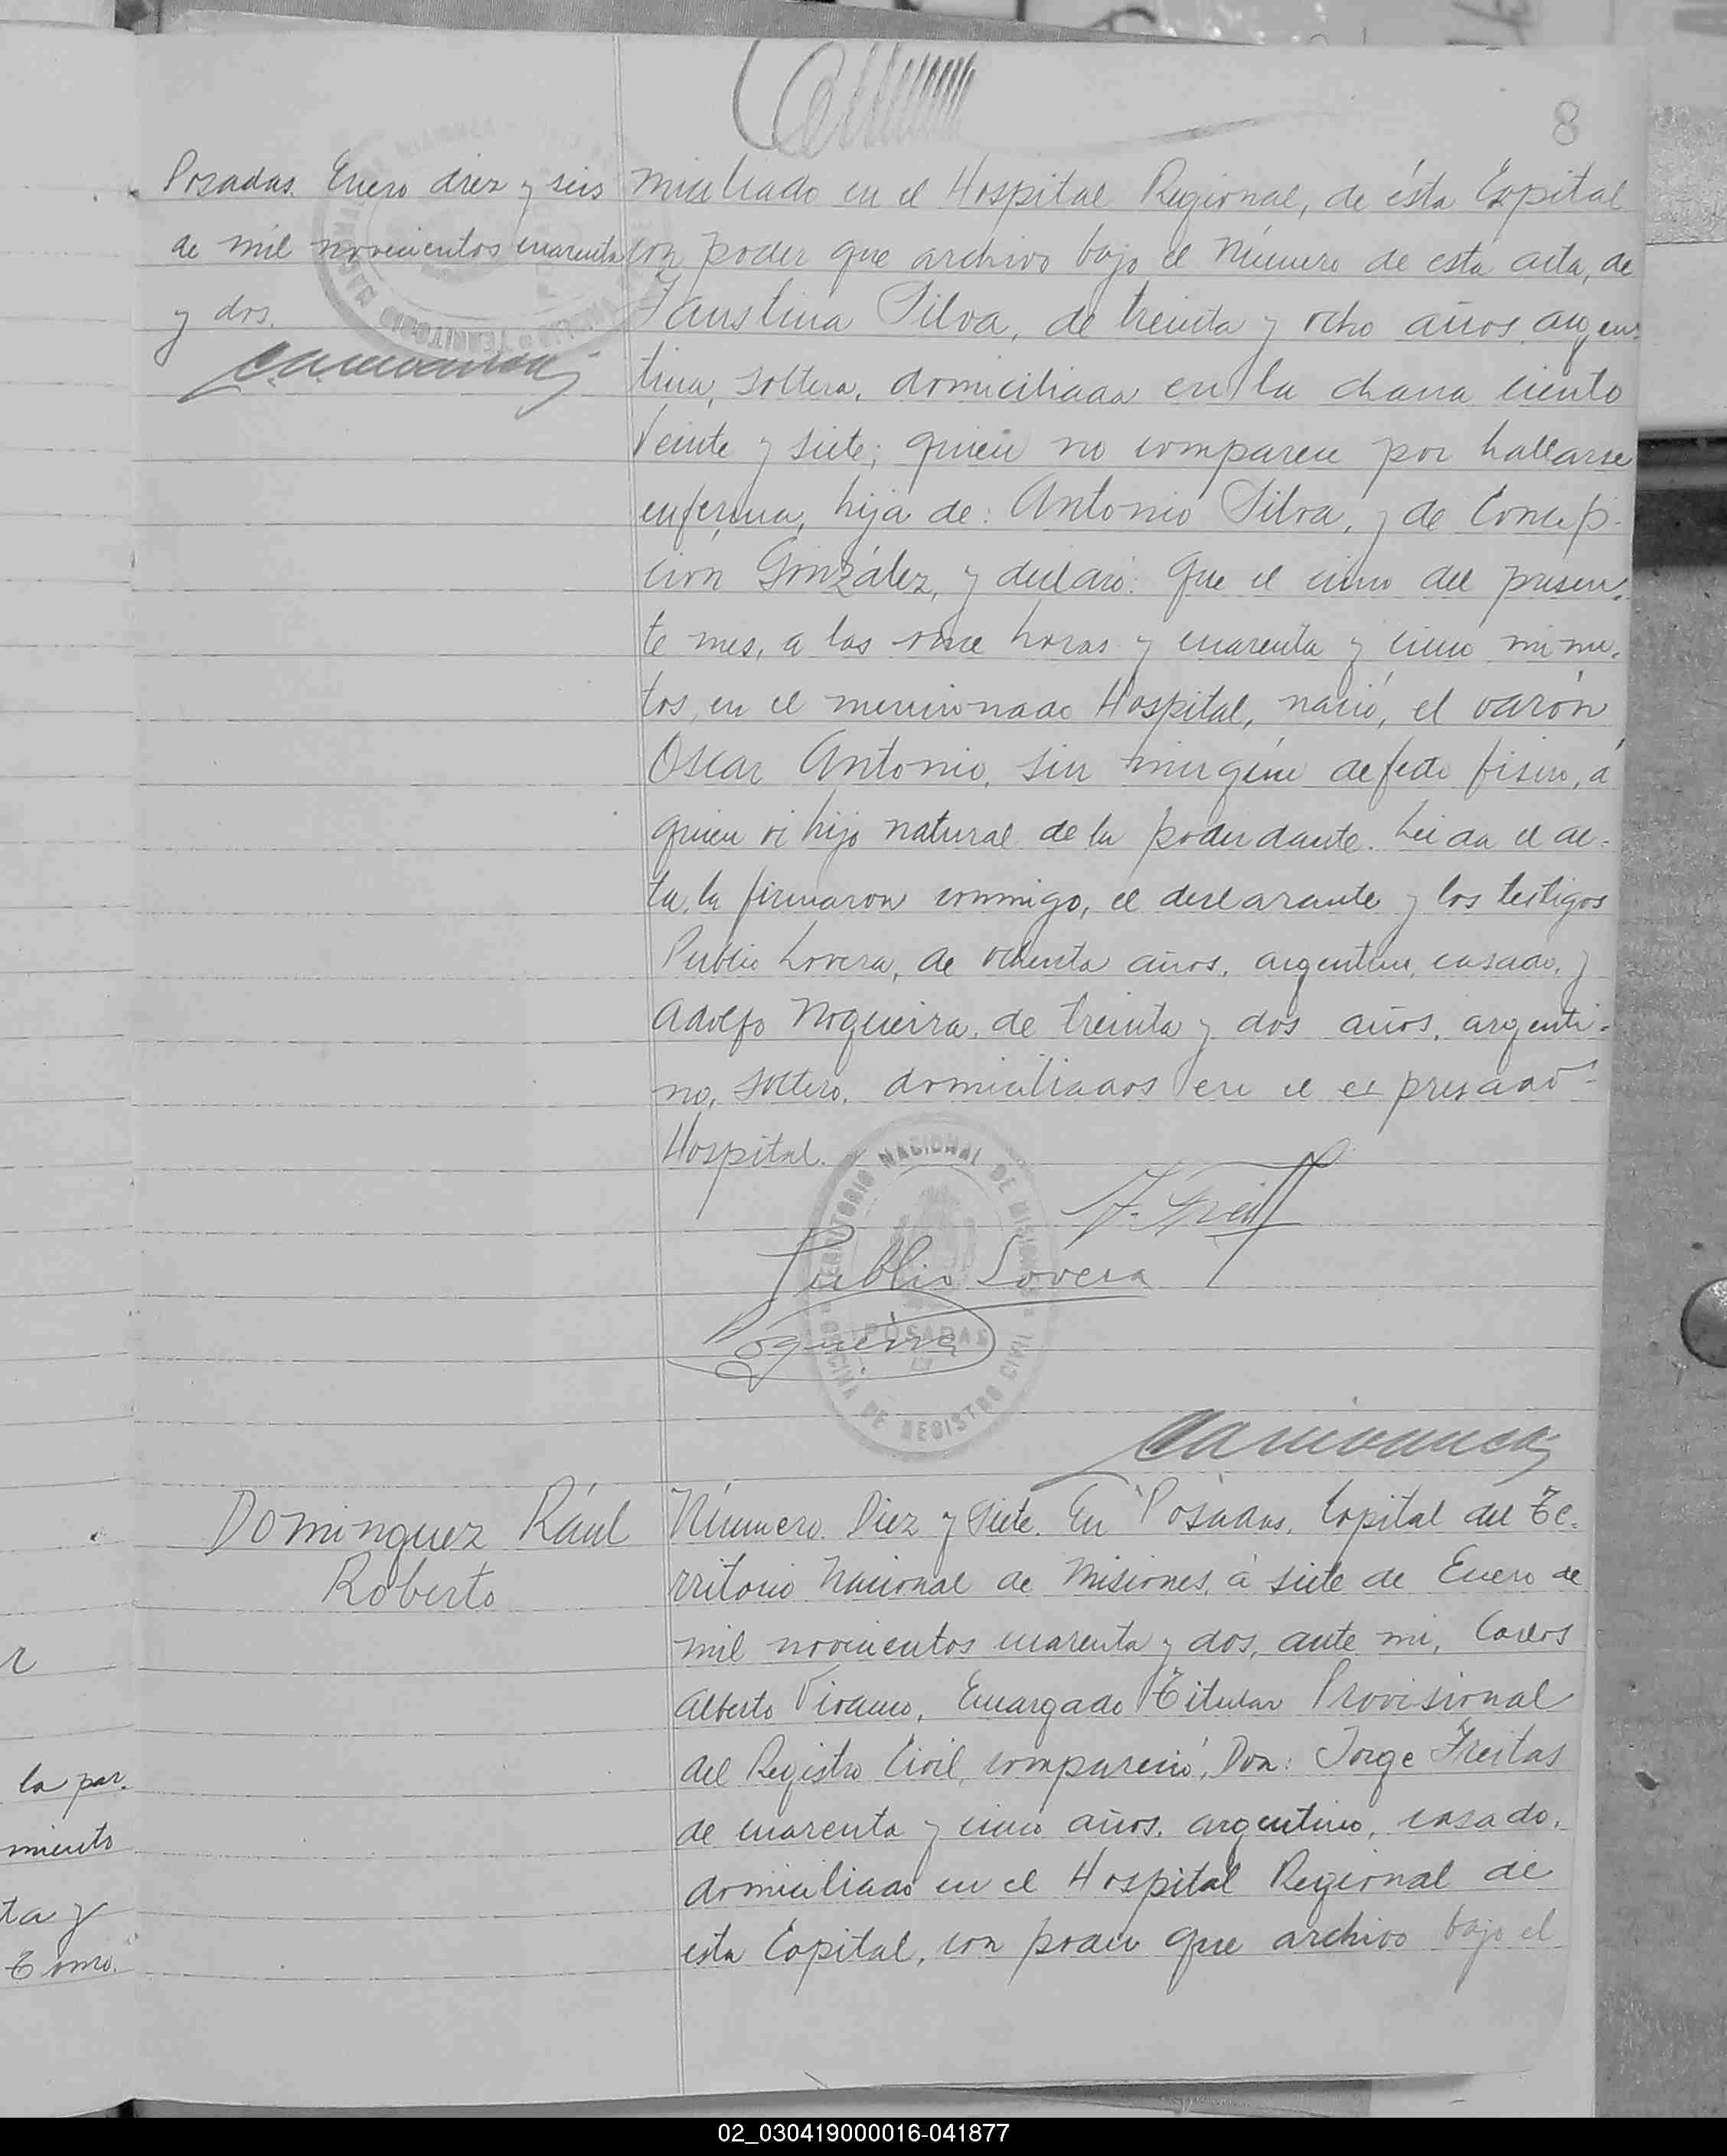 8
Posadas. Enero diez y seis
de mil novecientos cuarenta
y dos.
miciliado en el Hospital Regional, de ésta Capital
con poder que archivo bajo el Número de esta acta, de
Faustina Silva, de treinta y ocho años argen-
tina, soltera, domiciliada en la chacra ciento
Veinte y siete; quien no comparece por hallarse
enferma, hija de: Antonio Silva, y de Concep-
ción González, y declaró: Que el cinco del presen-
te mes, a las once horas y cuarenta y cinco minu-
tos, en el mencionado Hospital, nació, el varón
Oscar Antonio, sin ningún defecto físico, á
quien vi hijo natural de la poderdante. Leida el ac-
ta, la firmaron conmigo, el declarante y los testigos
Publio Lovera, de ochenta años, argentino, casado, y
Adolfo Nogueira, de treinta y dos años, argenti-
no, soltero, domiciliados en el expresado
Hospital.
TERRITORIO NACIONAL DE MISIONES
POSADAS
OFICINA DE REGISTRO CIVIL
Publio Lovera
Nogueira
Dominguez Raúl
Roberto
Número. Diez y Siete. En Posadas, Capital del Te-
rritorio Nacional de Misiones, á siete de Enero de
mil novecientos cuarenta y dos, ante mi, Carlos
Alberto Vivanco, Encargado Titular Provisional
del Registro Civil, compareció, Don: Jorge Freitas
de cuarenta y cinco años, argentino, casado,
domiciliado en el Hospital Regional de
esta Capital, con poder que archivo bajo el
r
la par.
miento
ta y
Tomo.
02_030419000016-041877